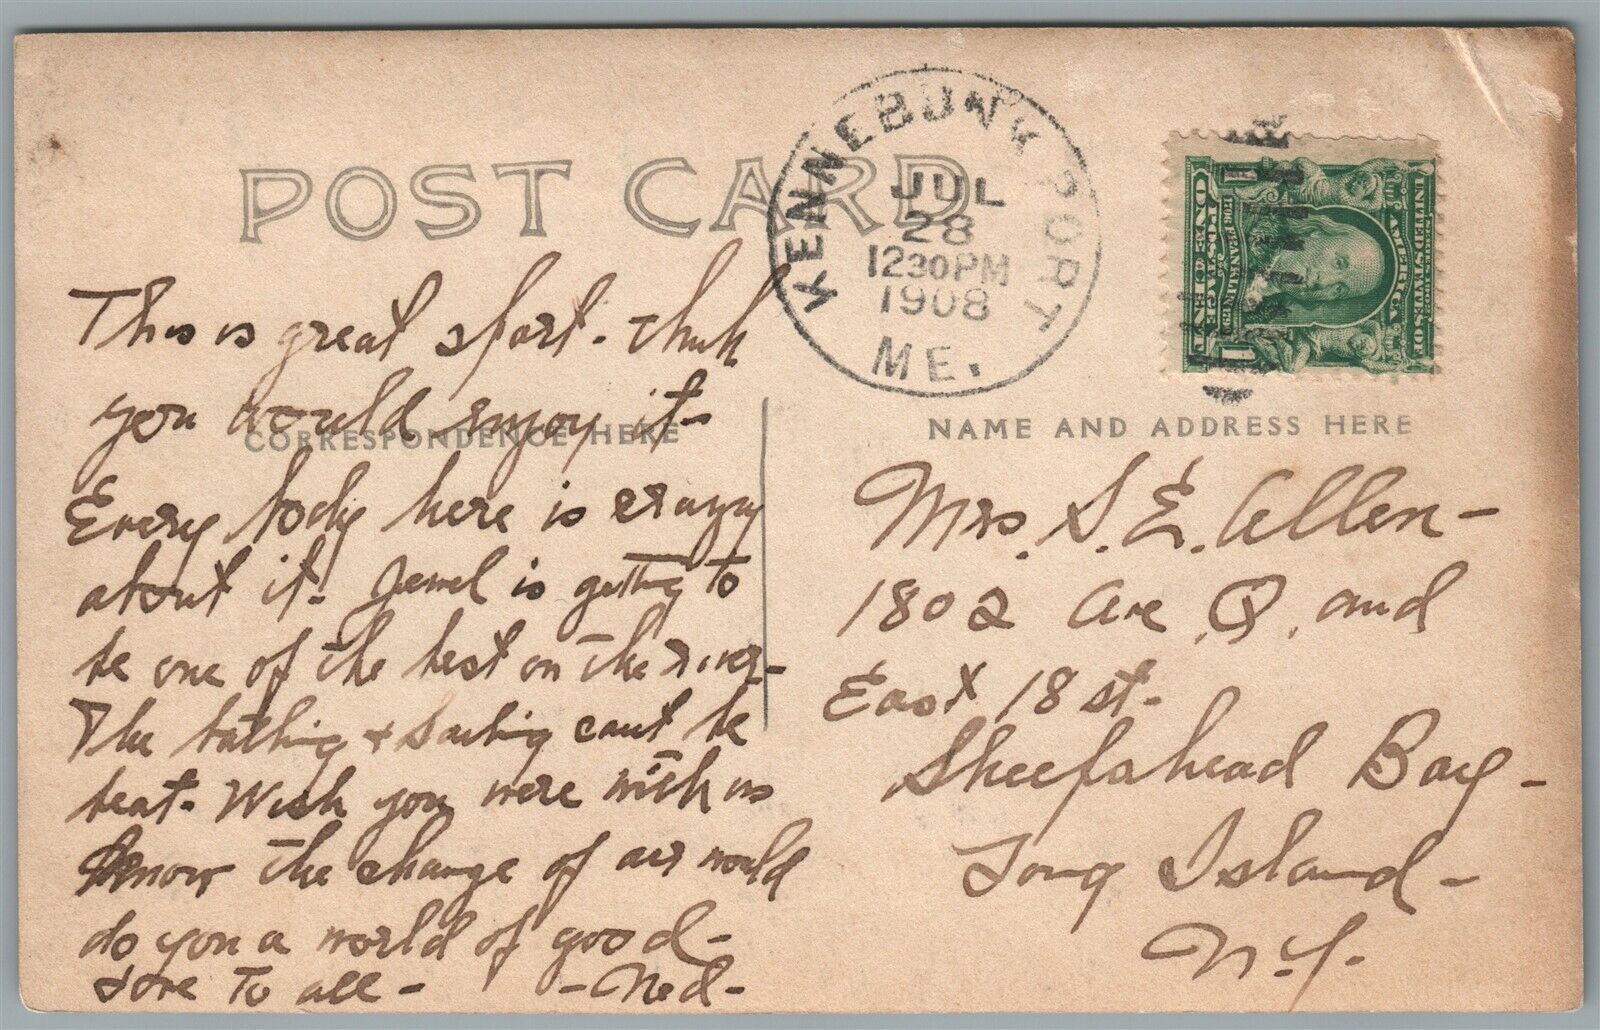 POST CARD
KENNEBUNK PORT
JUL
28
1230PM
1908
ME.
UNITED STATES OF
AMERICA
FRANKLIN
POSTAGE
ONE CENT
1 1
CORRESPONDENCE HERE
This is great sport - think
you would enjoy it -
Every body here is crazy
about it - Jewel is getting to
be one of the best on the river -
The bathing & Sailing cant be
beat - Wish you were with us
know the change of air would
do you a world of good -
Love to all - - Ned -
NAME AND ADDRESS HERE
Mrs. S. E. Allen -
1802 Ave. Q. and
East 18 st -
Sheepshead Bay -
Long Island -
N.Y.